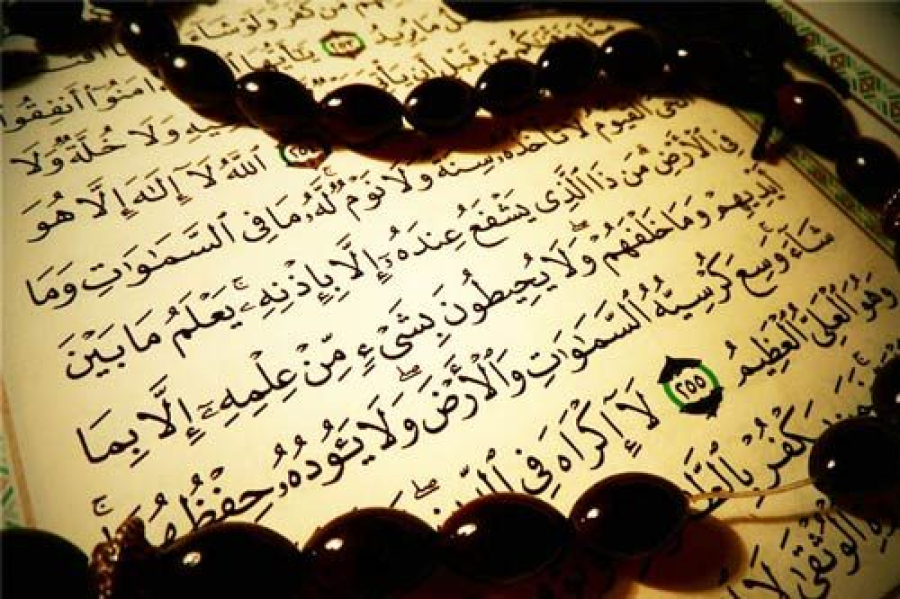 مَّن كَفَرَ وَلَوْ شَآءَ
مَا يُرِيدُ ٢٥٣ يَٰٓأَيُّهَا ءَامَنُوٓا۟ أَنفِقُوا۟
مِّن قَبْلِ أَن يَأْتِىَ فِيهِ وَلَا خُلَّةٌ وَلَا
٢٥٤ ٱللَّهُ لَآ إِلَٰهَ إِلَّا هُوَ
ٱلْحَىُّ ٱلْقَيُّومُ لَا تَأْخُذُهُۥ سِنَةٌ وَلَا نَوْمٌ لَّهُۥ مَا فِى ٱلسَّمَٰوَٰتِ وَمَا
فِى ٱلْأَرْضِ مَن ذَا ٱلَّذِى يَشْفَعُ عِندَهُۥٓ إِلَّا بِإِذْنِهِۦ يَعْلَمُ مَا بَيْنَ
أَيْدِيهِمْ وَمَا خَلْفَهُمْ وَلَا يُحِيطُونَ بِشَىْءٍ مِّنْ عِلْمِهِۦٓ إِلَّا بِمَا
شَآءَ وَسِعَ كُرْسِيُّهُ ٱلسَّمَٰوَٰتِ وَٱلْأَرْضَ وَلَا يَـُٔودُهُۥ حِفْظُهُمَا
وَهُوَ ٱلْعَلِىُّ ٱلْعَظِيمُ ٢٥٥ لَآ إِكْرَاهَ فِى ٱلدِّينِ
يَكْفُرْ
ٱلْوُثْقَىٰ لَا